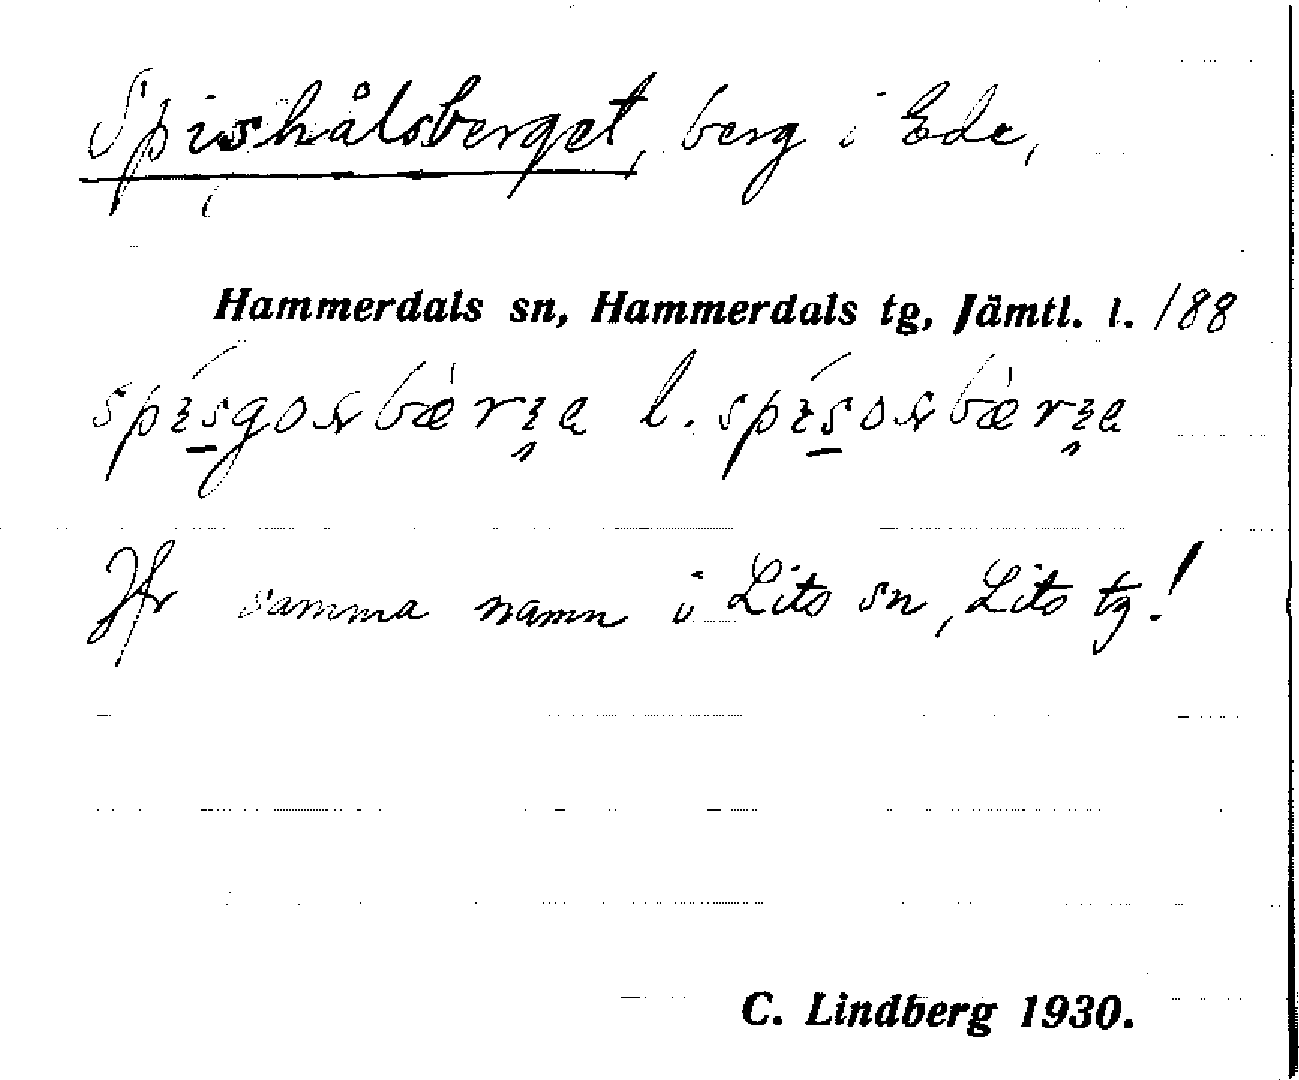 Spishålsberget, berg i Ede,
Hammerdals sn, Hammerdals tg, Jämtl. l. 188
l.
Jfr samma namn i Lits sn, Lits tg!
C. Lindberg 1930.